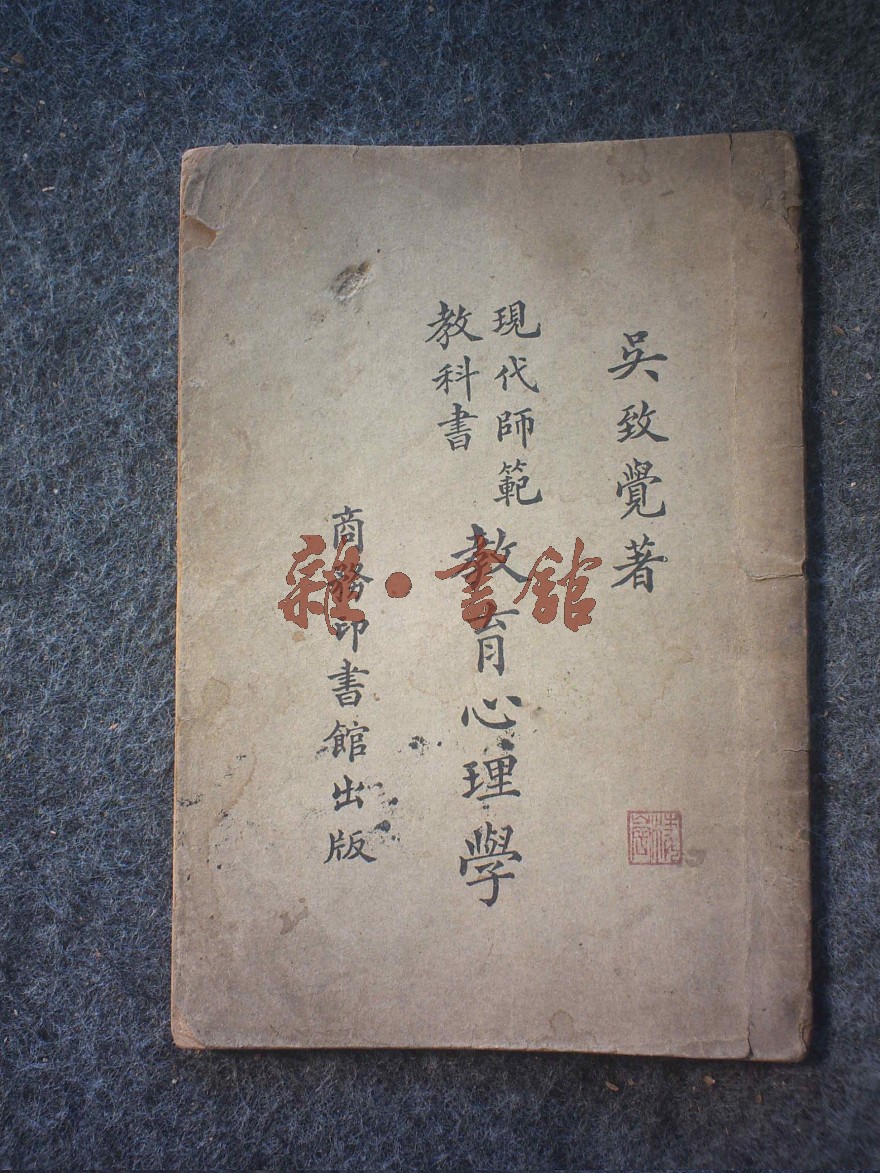 吳致覺著
現代師範
教科書
教育心理學
商務印書館出版
雜·書館